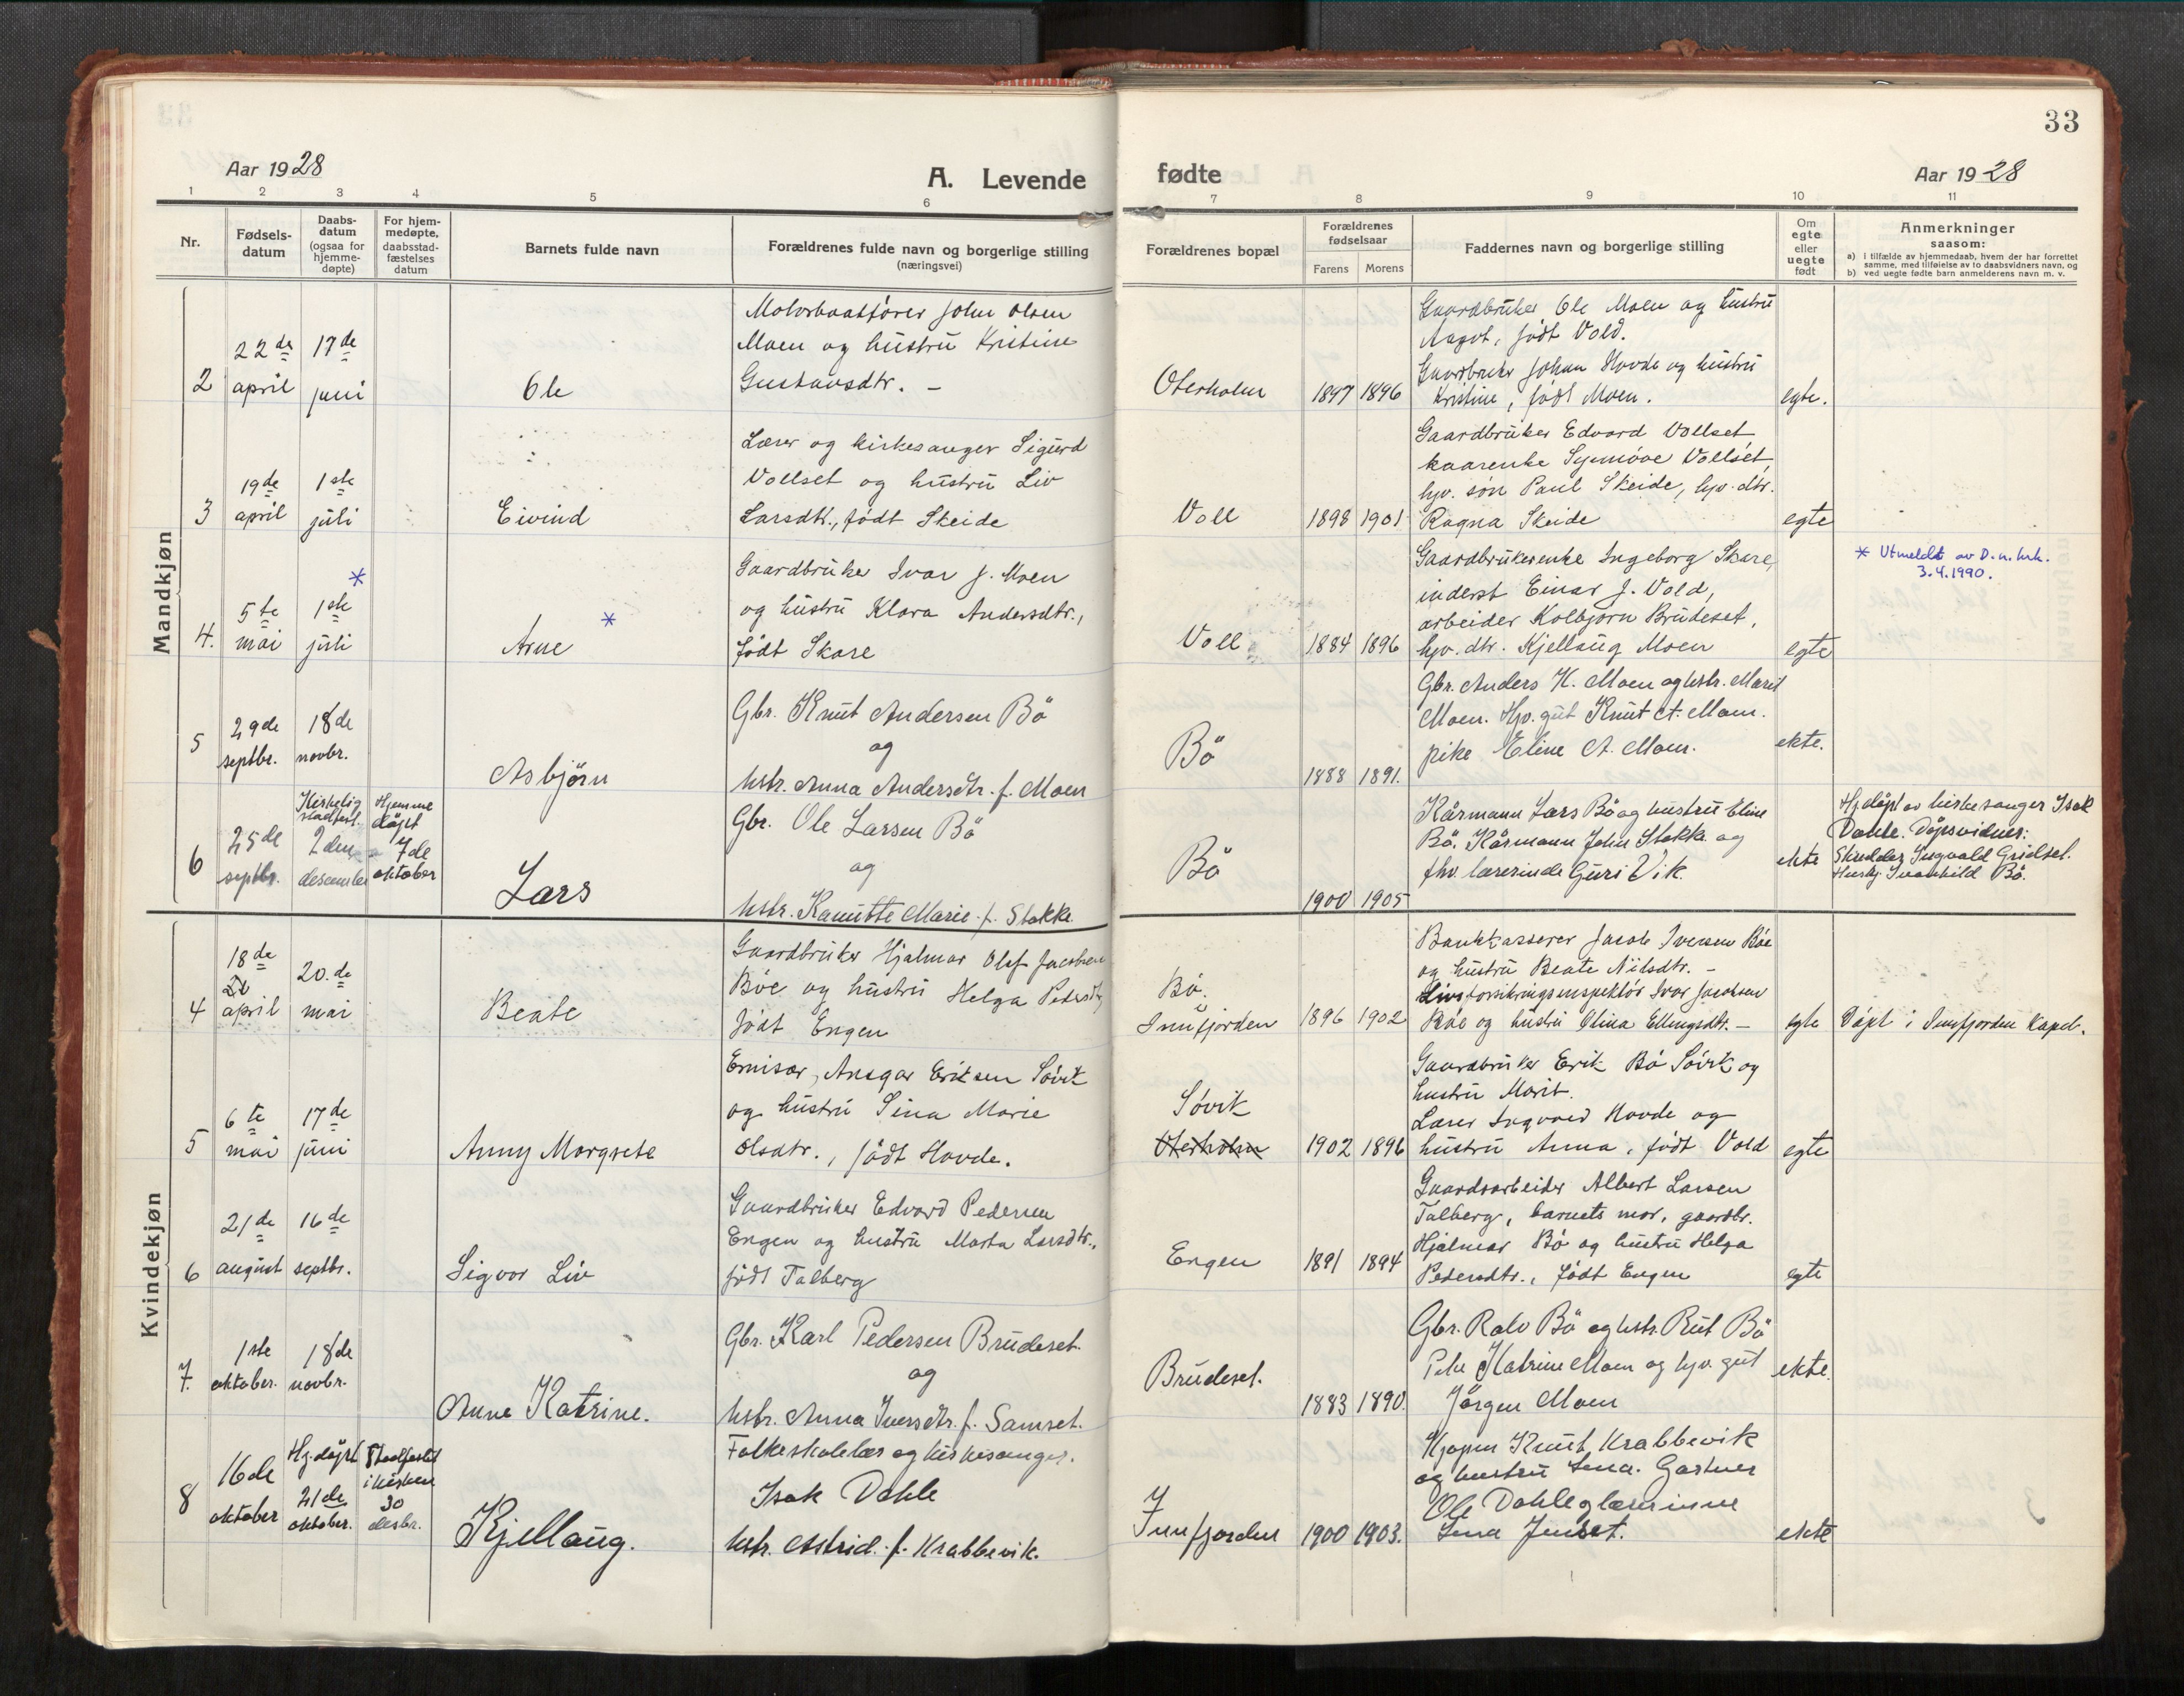 33
Aar 1928
A. Levende
fødte
Aar 1928
1 2 3 4 5 6 7 8 9 10 11
Nr.
Fødsels-
datum
Daabs-
datum
(ogsaa for
hjemme-
døpte)
For hjem-
medøpte,
daabsstad-
fæstelses
datum
Barnets fulde navn
Forældrenes fulde navn og borgerlige stilling
(næringsvei)
Forældrenes bopæl
Forældrenes
fødselsaar
Farens Morens
Faddernes navn og borgerlige stilling
Om
egte
eller
uegte
født
Anmerkninger
saasom:
a) i tilfælde av hjemmedaab, hvem der har forrettet
samme, med tilføielse av to daabsvidners navn, og
b) ved uegte fødte barn anmelderens navn m. v.
Mandkjøn
2
22de
april
17de
juni
Ole
Motorbaatfører John Olsen
Moen og hustru Kristine
Gustavsdtr. -
Oterholm
1897 1896
Gaardbruker Ole Moen og hustru
Aagot, født Vold.
Gaardbruker Johan Hovde og hustru
Kristine, født Moen.
egte.
3
19de
april
1ste
juli
Eivind
Lærer og kirkesanger Sigurd
Vollset og hustru Liv
Larsdtr., født Skeide
Voll
1898 1901
Gaardbruker Edvard Vollset,
kaarenke Synnöve Vollset,
hjv. søn Paul Skeide, hjv. dtr.
Ragna Skeide
egte
4.
5te
mai
*
1ste
juli
Arne *
Gaardbruker Ivar J. Moen
og hustru Klara Andersdtr.,
født Skare
Voll
1884 1896
Gaardbrukerenke Ingeborg Skare,
inderst Einar J. Vold,
arbeider Kolbjørn Brudeset,
hjv. dtr. Kjellaug Moen
egte
* Utmeldt av D.n.krk.
3.4.1990.
5
29de
septbr.
18de
novbr.
Asbjörn
Gbr. Knut Andersen Bö
og
hstr. Anna Andersdtr. f. Moen
Bö
1888 1891.
Gbr. Anders K. Moen og hstr. Marit
Moen. Hjv. gut Knut A. Moen.
pike Eline A. Moen.
ekte.
6
25de
septbr.
Kirkelig
stadfest.
2den
desember
Hjemme
döpt
7de
oktober
Lars
Gbr. Ole Larsen Bö
og
hstr. Kanutte Marie f. Stokke
Bö
1900 1905
Kårmann Lars Bö og hustru Eline
Bö. Kårmann John Stokke og
fhv. lærerinde Guri Vik.
ekte
Hj.döpt av kirkesanger Isak
Dahle. Döpsvidner:
Skredder Ingvald Gridset.
Huskj. Svanhild Bö.
Kvindekjøn
4
18de
april
20.de
mai
Beate
Gaardbruker Hjalmar Olaf Jacobsen
Böe og hustru Helga Petersdtr.,
født Engen
Bö.
Innfjorden
1896 1902
Bankkasserer Jacob Iversen Böe
og hustru Beate Nilsdtr. -
Livsforsikringsinspektör Ivar Jacobsen
Böe og hustru Olina Ellingsdtr. -
egte
Döpt i Innfjorden Kapel.
5
6te
mai
17de
juni
Anny Margrete
Emisær, Ansgar Eriksen Sövik
og hustru Sina Marie
Olsdtr., født Hovde.
Sövik
Oterholm
1902 1896
Gaardbruker Erik Bö Sövik og
hustru Marit.
Lærer Ingvard Hovde og
hustru Anna, født Vold
egte
6
21de
august
16de
septbr.
Sigvor Liv
Gaardbruker Edvard Pedersen
Engen og hustru Marta Larsdtr.,
født Talberg
Engen
1891 1894
Gaardsarbeider Albert Larsen
Talberg, barnets mor, gaardbr.
Hjalmar Bö og hustru Helga
Pedersdtr., født Engen
egte
7.
1ste
oktober.
18de
novbr.
Anne Katrine.
Gbr. Karl Pedersen Brudeset.
og
hstr. Anna Iversdtr. f. Samset.
Brudeset.
1883 1890.
Gbr. Ralv Bö og hstr. Rut Bö
Pike Katrine Moen og hjv. gut
Jörgen Moen
ekte.
8
16de
oktober
Hj.döpt
21de
oktober.
Stadfestet
i kirken
30
desbr.
Kjellaug.
Folkeskolelær og kirkesanger.
Isak Dahle
hstr. Astrid. f. Krabbevik.
Innfjorden
1900 1903.
Kjøpm Knut Krabbevik
og hustru Lena. Gartner
Ole Dahle og lærerinne
Lena Jenset.
ekte